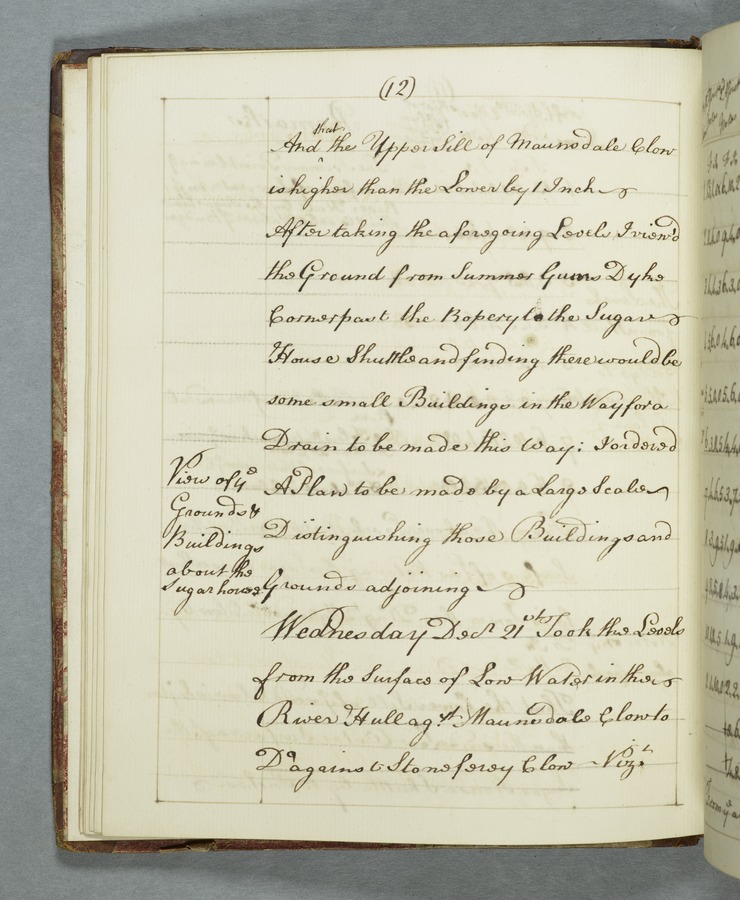 (12)
that
And the Upper Sill of Maunsdale Clow
is higher than the Lower by 1 Inch
After taking the aforegoing Levels I view'd
the Ground from Summer Gums Dyke
Corner past the Ropery to the Sugar
House Shuttle and finding there would be
some small Buildings in the Way for a
Drain to be made this way: I ordered
A Plan to be made by a Large Scale
Distinguishing those Buildings and
Grounds adjoining
View of ye
Grounds &
Buildings
about the
Sugar house
Wednesday Decr 21st Took the Levels
from the Surface of Low Water in the
River Hull agst Maunsdale Clow to
Do against Stoneferry Clow Vizt